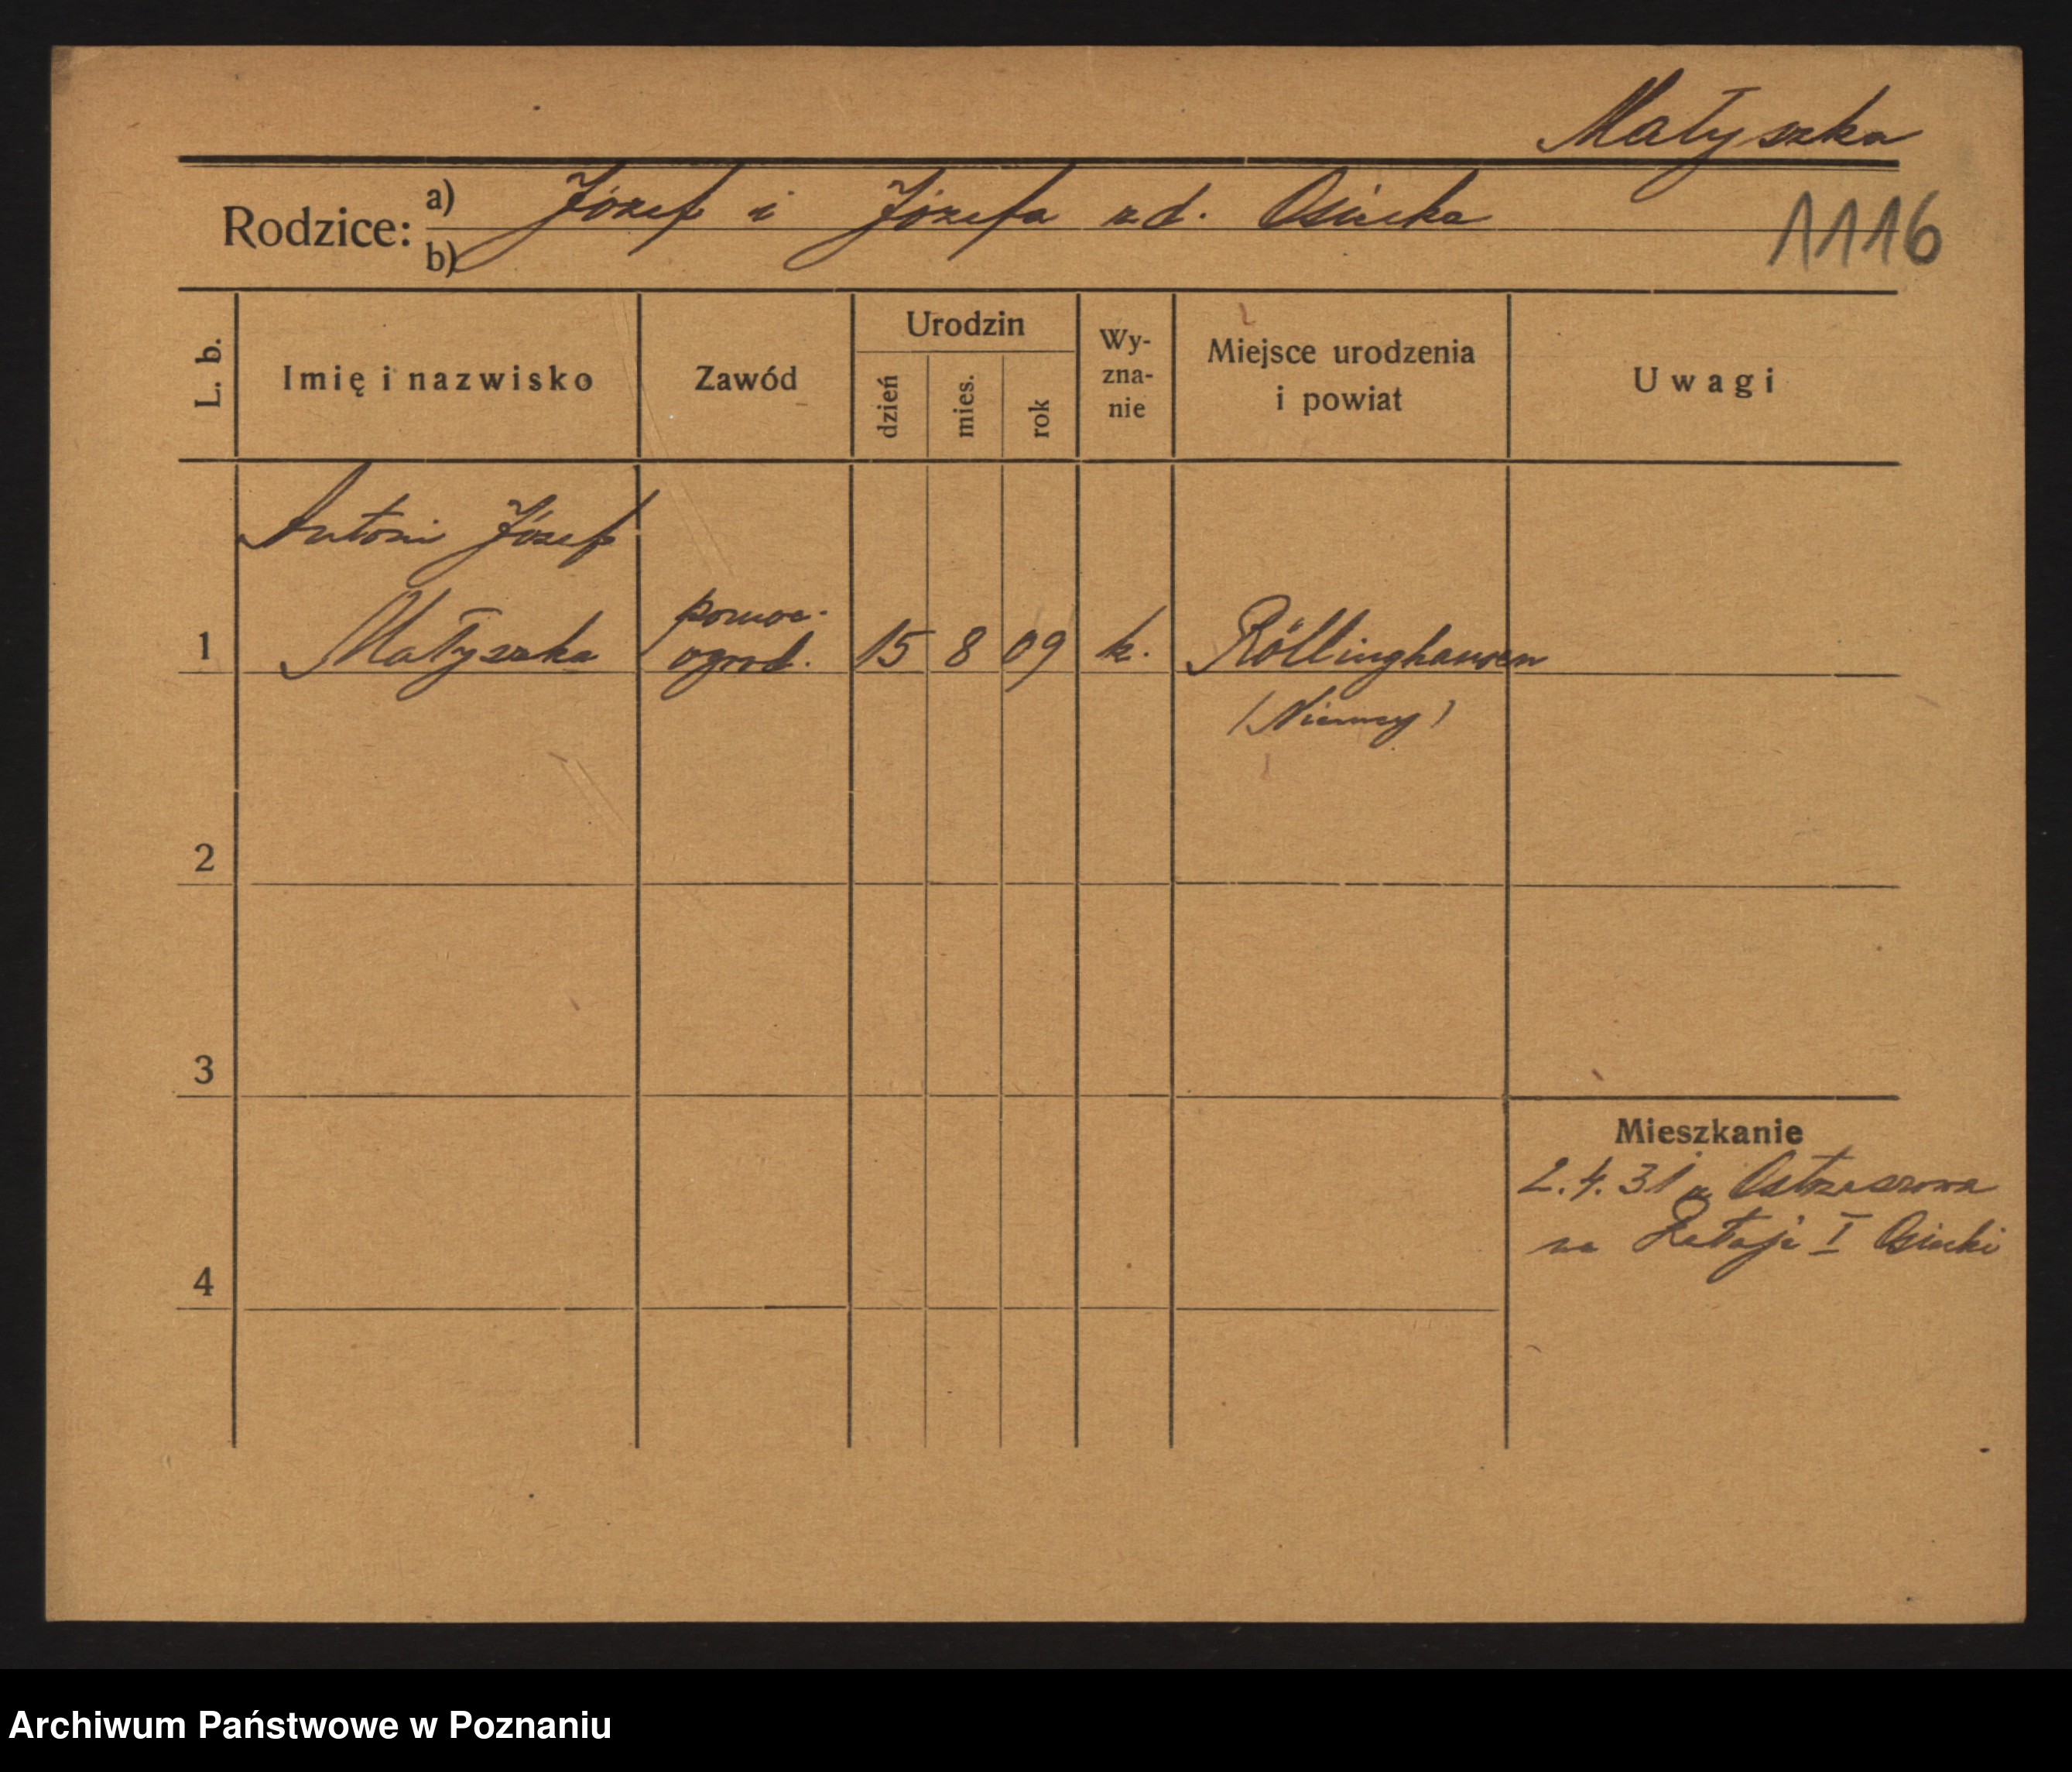 Małyszka
Rodzice: a) Józef i Józefa z d. Osiecka
b)
1116
L. b.
Imię i nazwisko
Zawód
Urodzin
dzień
mies.
rok
Wy-
zna-
nie
Miejsce urodzenia
i powiat
Uwagi
Antoni Józef
1 Małyszka pomoc. ogrod. 15 8 09 k. Röllinghausen
(Niemcy)
2
3
Mieszkanie
2.4.31 z Ostrzeszowa
na Rataje I Osiecki
4
Archiwum Państwowe w Poznaniu